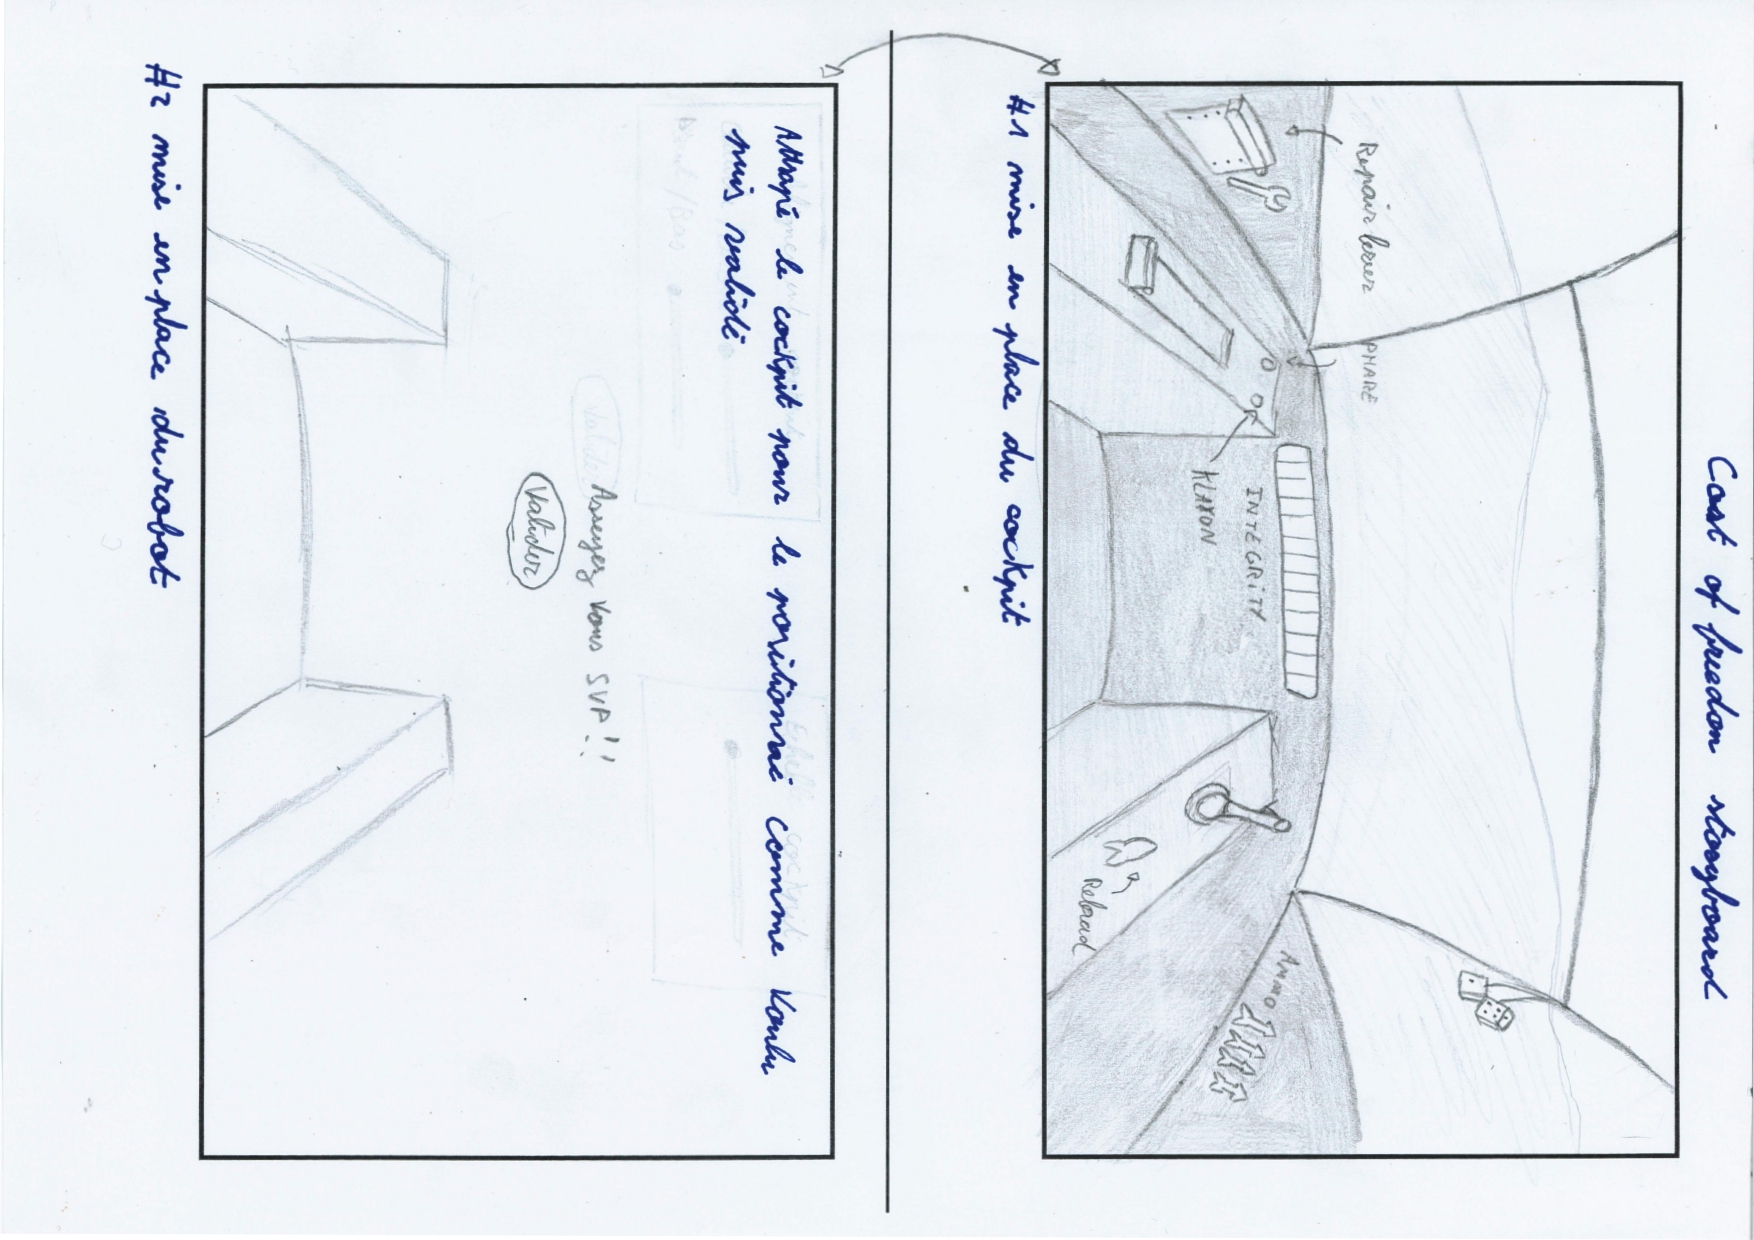 Cost of freedon storyboard
Repair lever
PHARE
INTEGRITY
KLAXON
AMMO
Reload
#1 mise en place du cockpit
Attrapé le cockpit pour le positionné comme voulu
puis validé
Echelle cockpit
/Bas
Valider
Asseyez vous SVP!!
Valider
#2 mise en place du robot